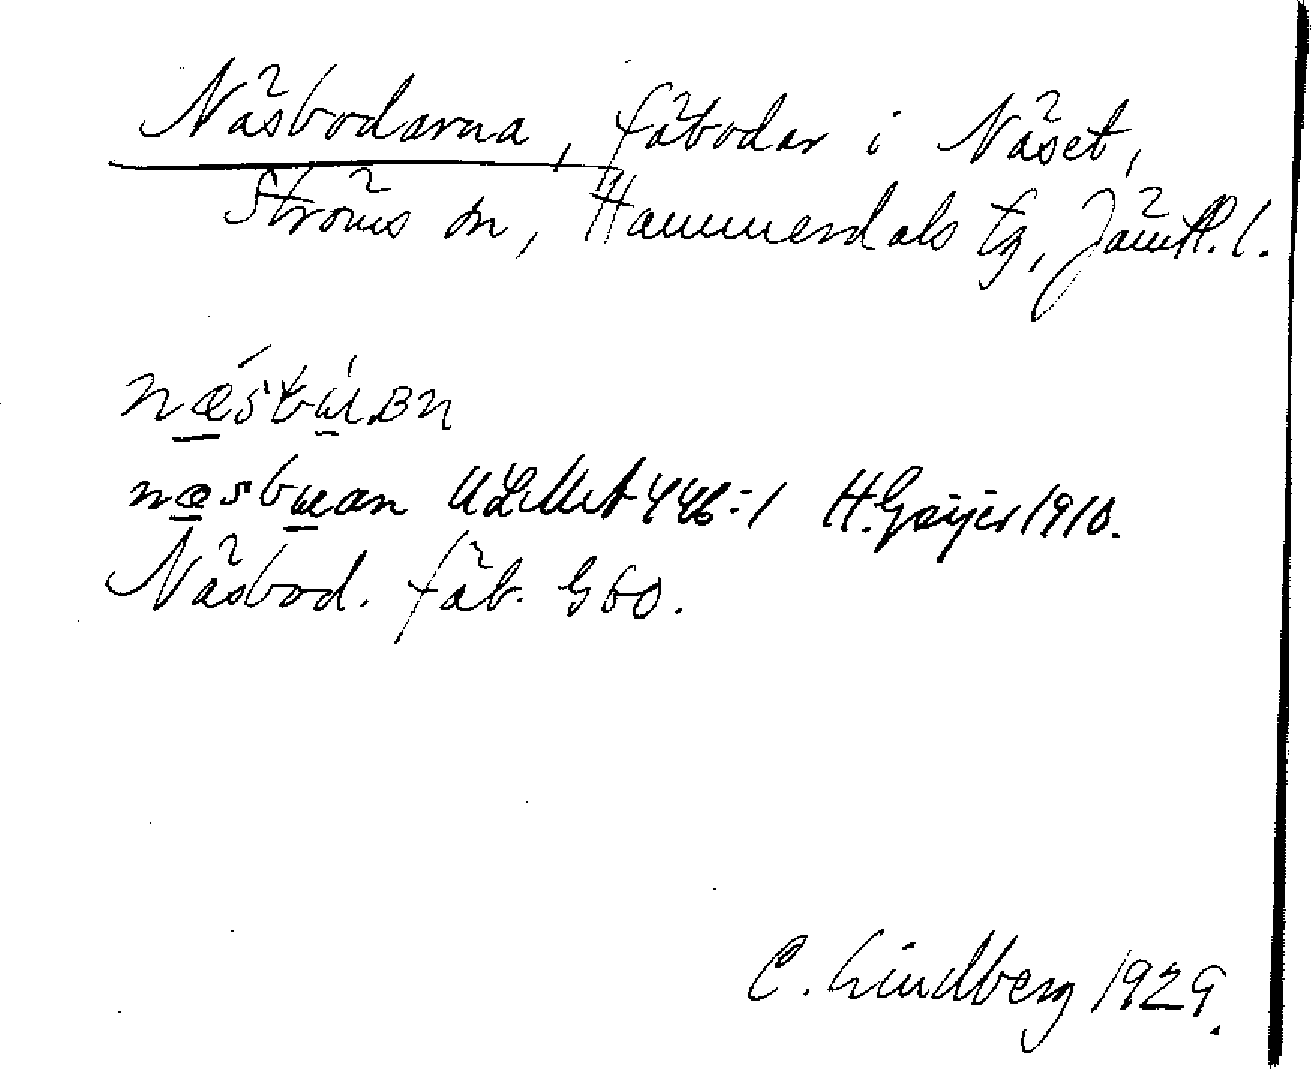 Näsbodarna, fäbodar i Näset,
Ströms sn, Hammerdals tg, Jämtl. l.
næ̲sbu̲an H. Geijer 1910.
Näsbod. fäb. G 60.
C. Lindberg 1929.